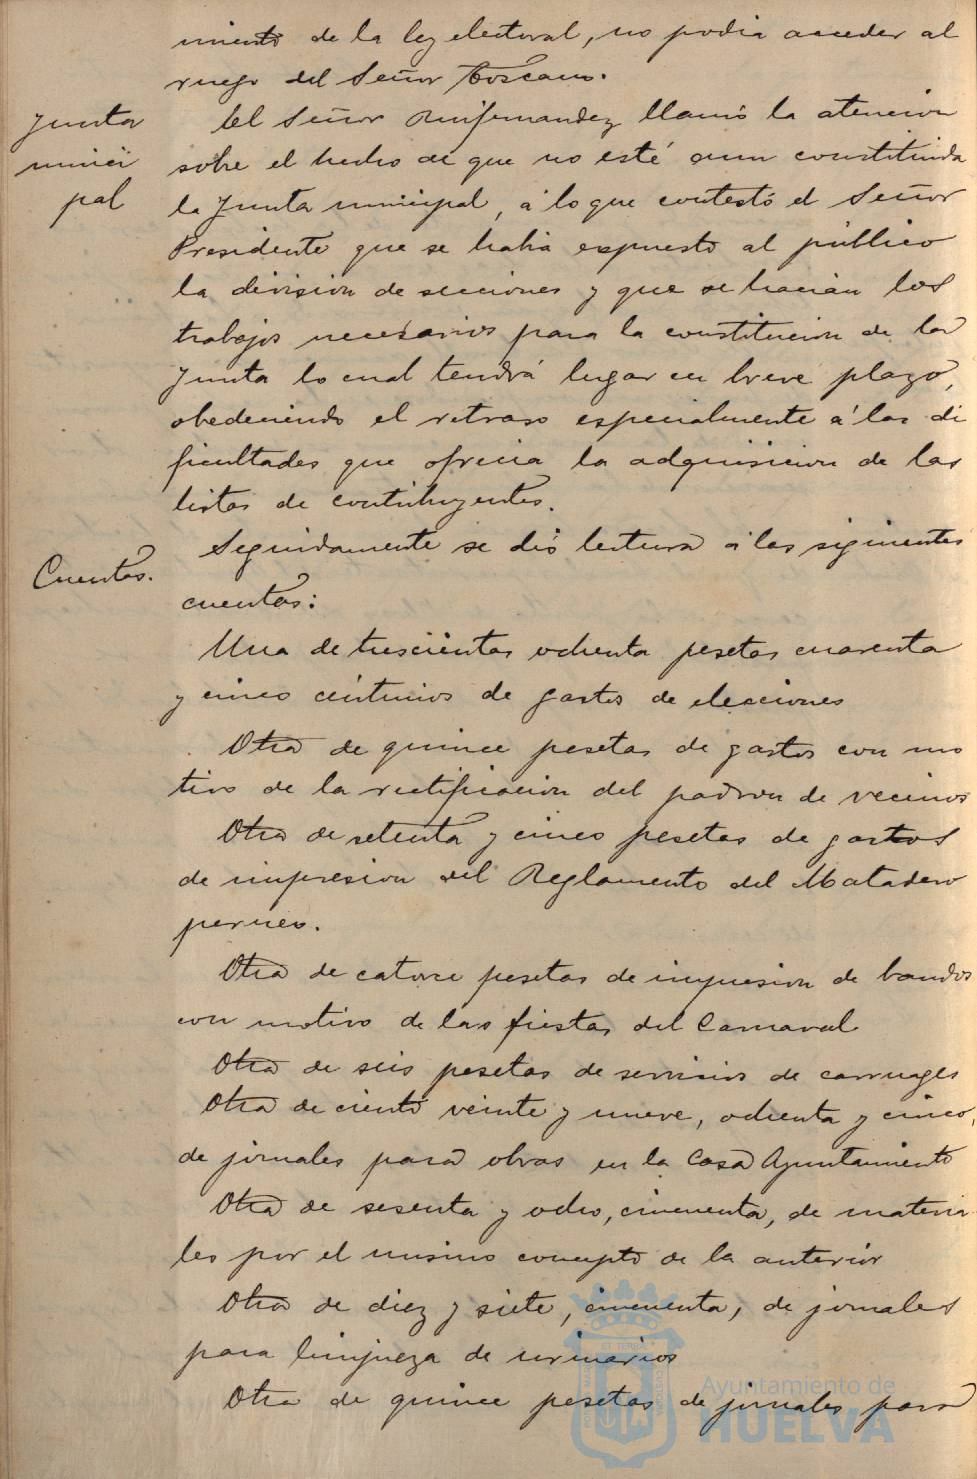 miento de la ley electoral, no podia acceder al
ruego del Señor Toscano.
Junta
munici
pal
El Señor Ruifernandez llamó la atencion
sobre el hecho de que no esté aun constituida
la Junta municipal, á lo que contestó el Señor
Presidente que se habia expuesto al público
la division de secciones y que se hacian los
trabajos necesarios para la constitucion de la
Junta lo cual tendrá lugar en breve plazo,
obedeciendo el retraso especialmente á las di
ficultades que ofrecia la adquisicion de las
listas de contribuyentes.
Cuentas.
Seguidamente se dió lectura á las siguientes
cuentas:
Una de trescientas ochenta pesetas cuarenta
y cinco céntimos de gastos de elecciones
Otra de quince pesetas de gastos con mo
tivo de la rectificacion del padron de vecinos
Otra de setenta y cinco pesetas de gastos
de impresion del Reglamento del Matadero
perneo.
Otra de catorce pesetas de impresion de bandos
con motivo de las fiestas del Carnaval
Otra de seis pesetas de servicios de carruages
Otra de ciento veinte y nueve, ochenta y cinco,
de jornales para obras en la Casa Ayuntamiento
Otra de sesenta y ocho, cincuenta, de materia
les por el mismo concepto de la anterior
Otra de diez y siete, cincuenta, de jornales
para limpieza de urinarios
Otra de quince pesetas de jornales para
Ayuntamiento de
HUELVA